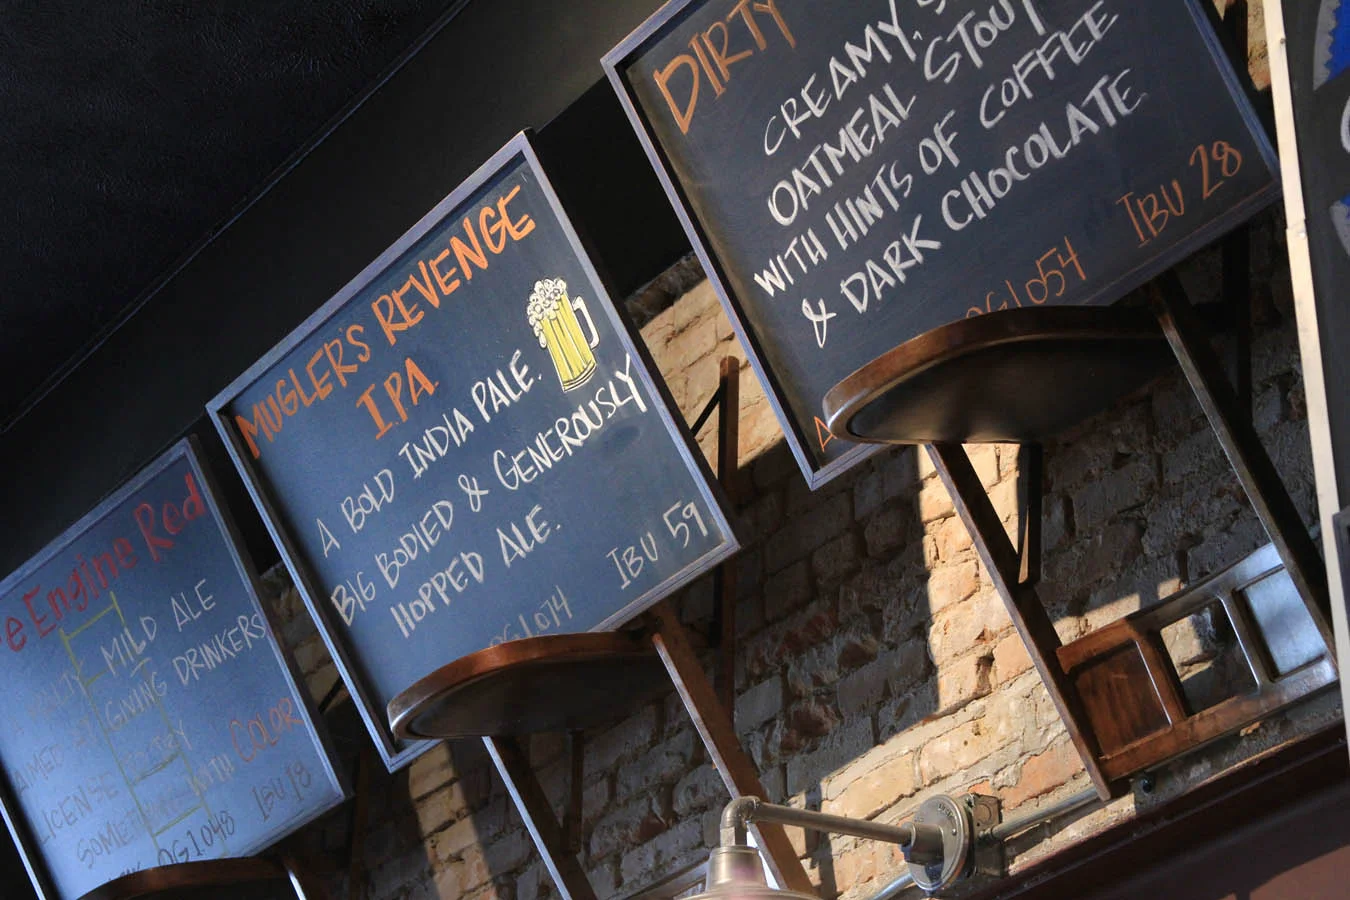 e Engine Red
MILD ALE
GIVING DRINKERS
LICENSE
WITH COLOR
OG 1.048 IBU 18
MUGLER'S REVENGE
I.P.A.
A BOLD INDIA PALE.
BIG BODIED & GENEROUSLY
HOPPED ALE.
OG 1.074 IBU 59
DIRTY
CREAMY,
OATMEAL STOUT
WITH HINTS OF COFFEE
& DARK CHOCOLATE
OG 1.054 IBU 28